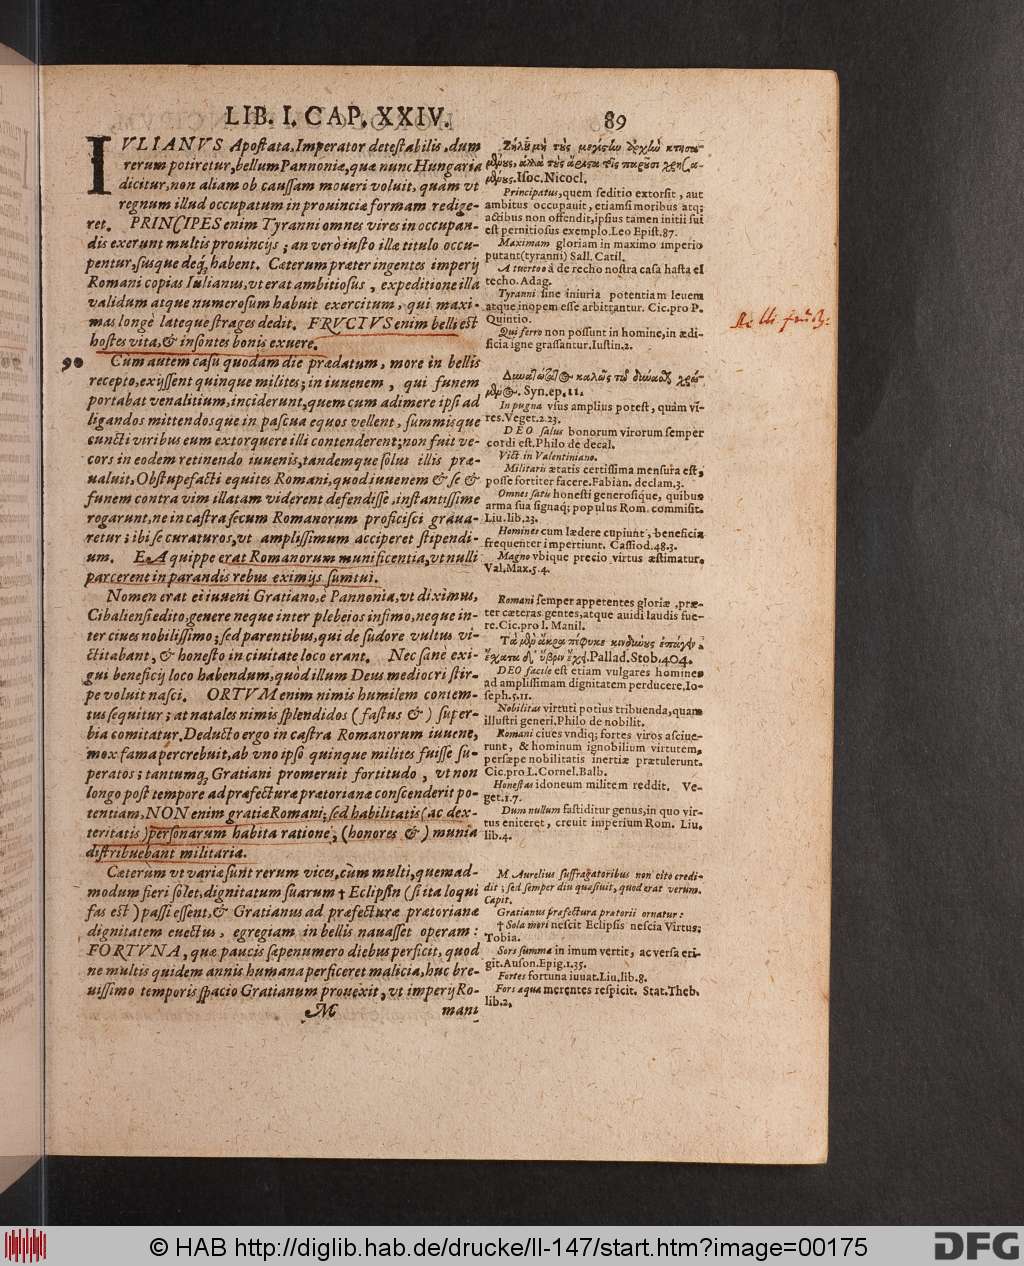 LIB. I. CAP. XXIV. 89
IVLIANVS Apoſtata, Imperator deteſtabilis, dum
rerum potiretur, bellum Pannoniæ, quæ nunc Hungaria
dicitur, non aliam ob cauſſam moueri voluit, quàm vt
regnum illud occupatum in prouinciæ formam redige-
ret. PRINCIPES enim Tyranni omnes vires in occupan-
dis exerunt multis prouincijs; an verò iuſto illæ titulo occu-
pentur, ſusque deq; habent. Cæterum præter ingentes imperij
Romani copias Iulianus, vt erat ambitioſus, expeditione illa
validum atque numeroſum habuit exercitum, qui maxi-
mas longè lateque ſtrages dedit. FRVCTVS enim belli eſt
hoſtes vita, & inſontes bonis exuere.
90 Cum autem caſu quodam die prædatum, more in bellis
recepto, exijſſent quinque milites; in iuuenem, qui funem
portabat venalitium, inciderunt, quem cum adimere ipſi ad
ligandos mittendosque in paſcua equos vellent, ſummisque
cuncti viribus eum extorquere illi contenderent; non fuit ve-
cors in eodem retinendo iuuenis, tandemque ſolus illis præ-
ualuit. Obſtupefacti equites Romani, quod iuuenem & ſe &
funem contra vim illatam viderent defendiſſe, inſtantiſſime
rogarunt, ne in caſtra ſecum Romanorum proficiſci graua-
retur; ibi ſe curaturos, vt ampliſſimum acciperet ſtipendi-
um. EA quippe erat Romanorum munificentia, vt nulli
parcerent in parandis rebus eximijs ſumtui.
Nomen erat ei iuueni Gratiano, è Pannonia, vt diximus,
Cibalienſi edito, genere neque inter plebeios infimo, neque in-
ter ciues nobiliſſimo; ſed parentibus, qui de ſudore vultus vi-
ctitabant, & honeſto in ciuitate loco erant. Nec ſanè exi-
gui beneficij loco habendum, quòd illum Deus mediocri ſtir-
pe voluit naſci. ORTVM enim nimis humilem contem-
tus ſequitur; at natales nimis ſplendidos (faſtus &) ſuper-
bia comitatur. Deducto ergo in caſtra Romanorum iuuene,
mox fama percrebuit, ab vno ipſo quinque milites fuiſſe ſu-
peratos; tantumq; Gratiani promeruit fortitudo, vt non
longo poſt tempore ad præfecturæ prætorianæ conſcenderit po-
tentiam, NON enim gratiæ Romani; ſed habilitatis (ac dex-
teritatis) perſonarum habita ratione, (honores &) munia
diſtribuebant militaria.
Cæterùm vt variæ ſunt rerum vices, cùm multi, quemad-
modum fieri ſolet, dignitatum ſuarum † Eclipſin (ſi ita loqui
fas eſt) paſſi eſſent, & Gratianus ad præfecturæ prætorianæ
dignitatem euectus, egregiam in bellis nauaſſet operam:
FORTVNA, quæ paucis ſæpenumero diebus perficit, quod
ne multis quidem annis humana perficeret malicia, huc bre-
uiſſimo temporis ſpacio Gratianum prouexit, vt imperij Ro-
M mani
Ζήλου μὴ τοὺς μεγίστην ἀρχὴν κτησα-
μένους, ἀλλὰ τοὺς ἄριστα τῇ παρούσῃ χρησα-
μένους. Iſoc. Nicocl.
Principatus, quem ſeditio extorſit, aut
ambitus occupauit, etiamſi moribus atq;
actibus non offendit, ipſius tamen initii ſui
eſt pernitioſus exemplo. Leo Epiſt. 87.
Maximam gloriam in maximo imperio
putant (tyranni) Sall. Catil.
A tuerto o à de recho noſtra caſa haſta el
techo. Adag.
Tyranni ſine iniuria potentiam leuem
atque inopem eſſe arbitrantur. Cic. pro P.
Quintio.
Qui ferro non poſſunt in homine, in ædi-
ficia igne graſſantur. Iuſtin. 2.
καλῶς τῷ
Syn. ep. 11.
In pugna vſus amplius poteſt, quàm vi-
res. Veget. 2. 23.
DEO ſalus bonorum virorum ſemper
cordi eſt. Philo de decal.
Vict. in Valentiniano.
Militaris ætatis certiſſima menſura eſt,
poſſe fortiter facere. Fabian. declam. 3.
Omnes ſatis honeſti generoſique, quibus
arma ſua ſignaq; populus Rom. commiſit.
Liu. lib. 23.
Homines cum lædere cupiunt, beneficia
frequenter impertiunt. Caſſiod. 48. 3.
Magno vbique precio virtus æſtimatur.
Val. Max. 5. 4.
Romani ſemper appetentes gloriæ, præ-
ter cæteras gentes, atque auidi laudis fue-
re. Cic. pro l. Manil.
Pallad. Stob. 404.
DEO facile eſt etiam vulgares homines
ad ampliſſimam dignitatem perducere. Io-
ſeph. 5. 11.
Nobilitas virtuti potius tribuenda, quam
illuſtri generi. Philo de nobilit.
Romani ciues vndiq; fortes viros aſciue-
runt, & hominum ignobilium virtutem,
perſæpe nobilitatis inertiæ prætulerunt.
Cic. pro L. Cornel. Balb.
Honeſtas idoneum militem reddit. Ve-
get. 1. 7.
Dum nullum faſtiditur genus, in quo vir-
tus eniteret, creuit imperium Rom. Liu.
lib. 4.
M Aurelius ſuffragatoribus non cito credi-
dit; ſed ſemper diu quæſiuit, quod erat verum.
Capit.
Gratianus præfectura prætorii ornatur:
† Sola mori neſcit Eclipſis neſcia Virtus;
Tobia.
Sors ſumma in imum vertit, ac verſa eri-
git. Auſon. Epig. 1. 35.
Fortes fortuna iuuat. Liu. lib. 8.
Fors æqua merentes reſpicit. Stat. Theb.
lib. 2.
© HAB http://diglib.hab.de/drucke/ll-147/start.htm?image=00175
DFG